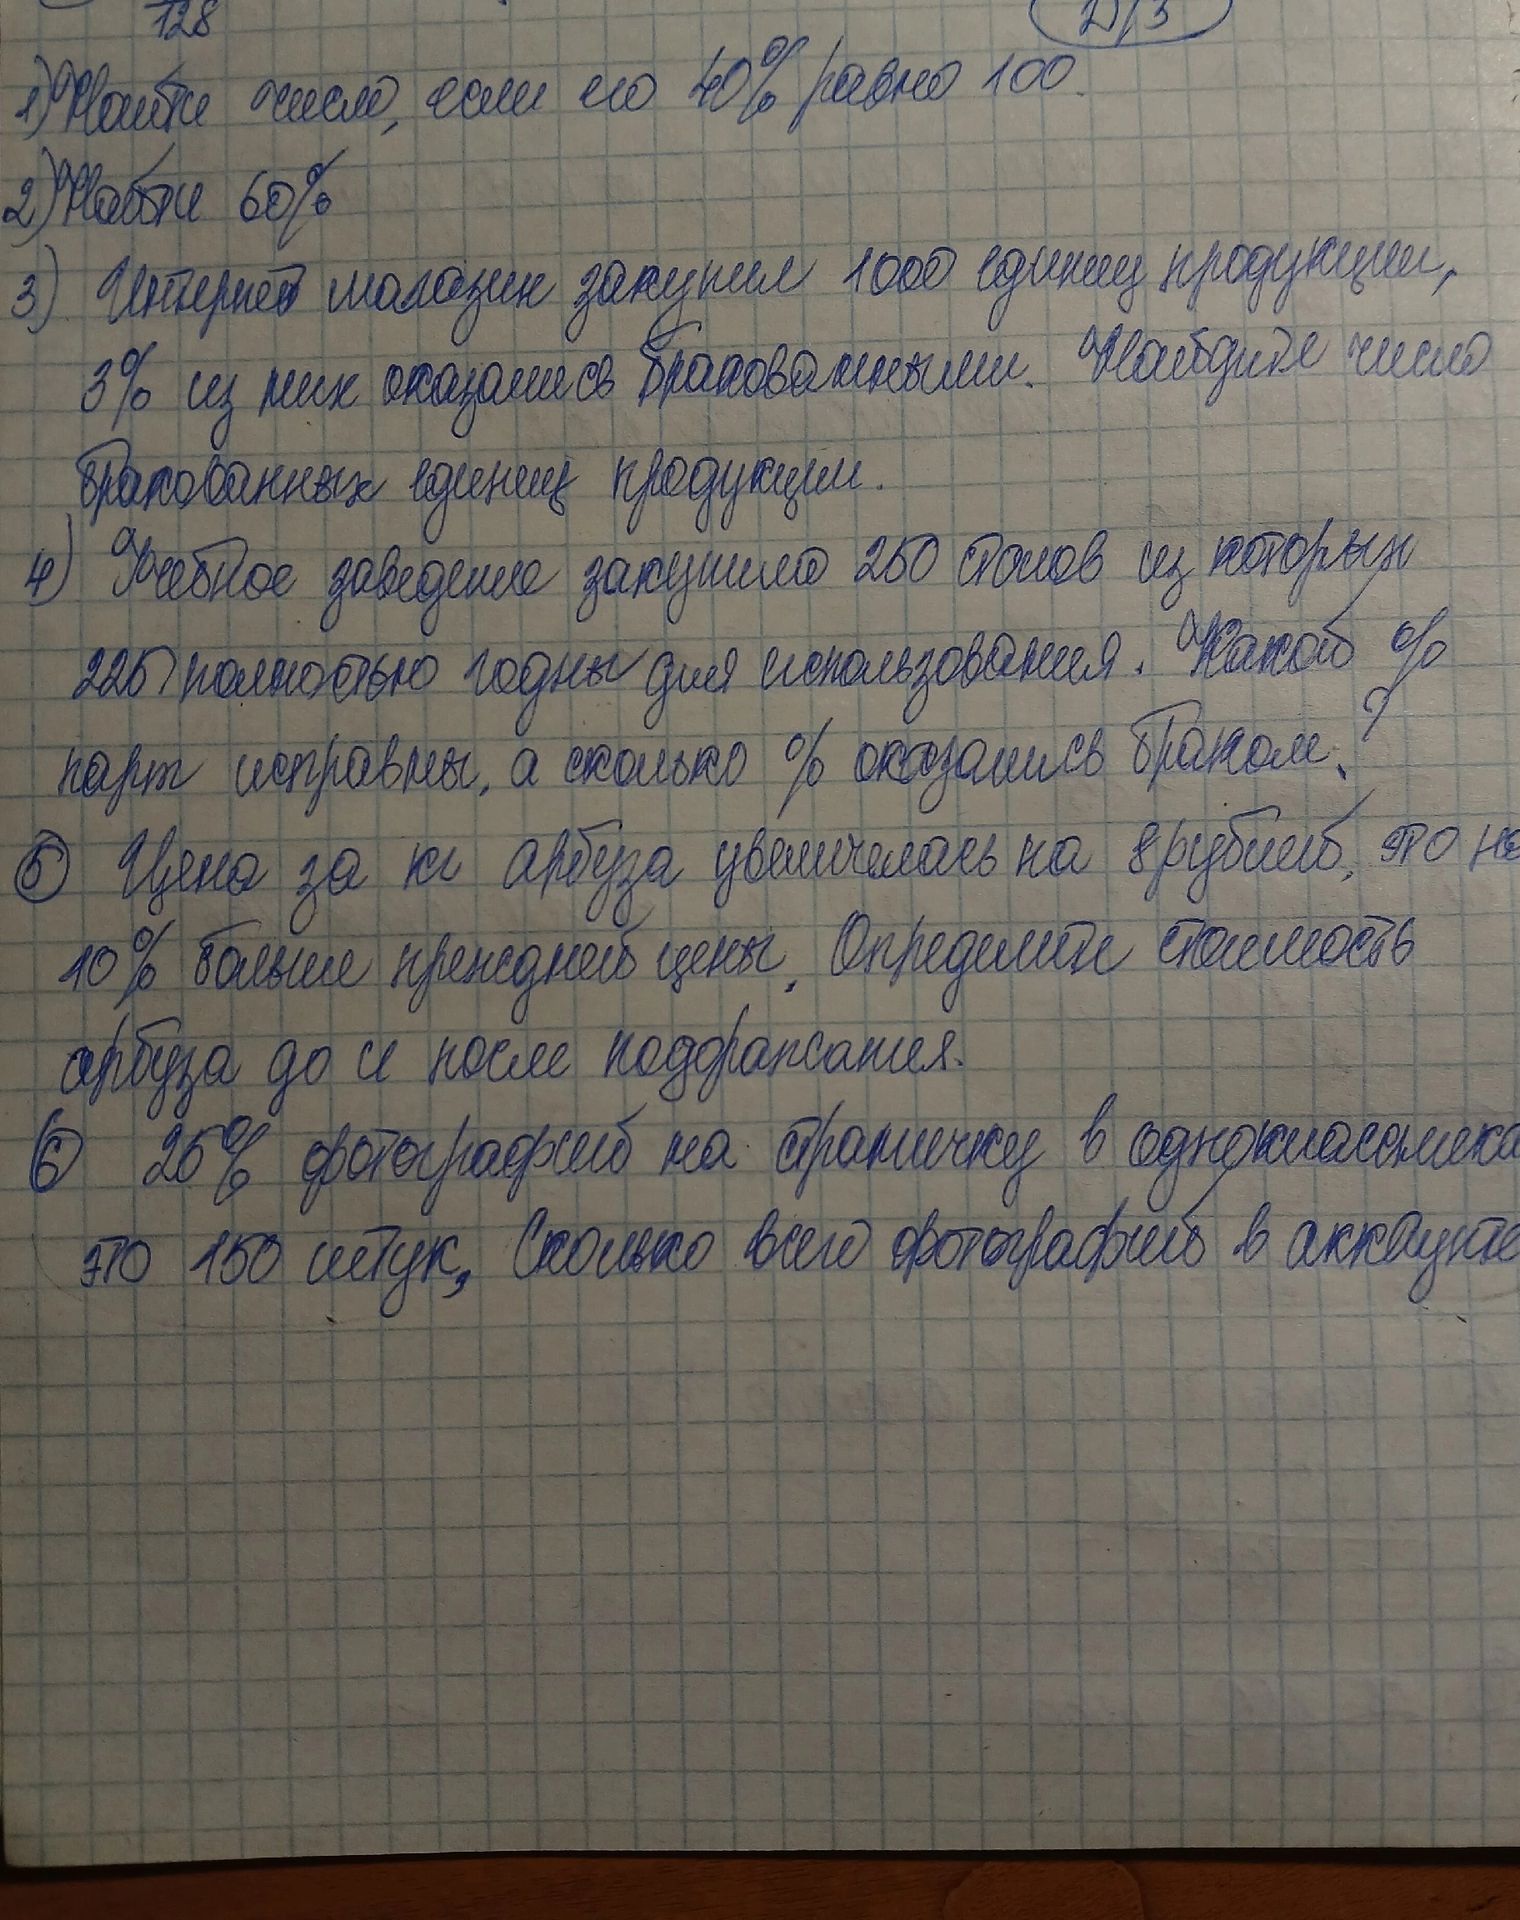 128 Д/З
1) Найти число, если его 40% равно 100.
2) Найти 60%
3) Интернет магазин закупил 1000 единиц продукции,
3% из них оказались бракованными. Найдите число
бракованных единиц продукции.
4) Учебное заведение закупило 250 столов из которых
225 полностью годны для использования. Какой %
парт исправны, а сколько % оказались браком?
5) Цена за кг арбуза увеличилась на 8 рублей, это на
10% больше прежней цены. Определите стоимость
арбуза до и после подоражания.
6) 25% фотографий на страничку в одноклассника
это 150 штук, Сколько всего фотографий в аккаунте